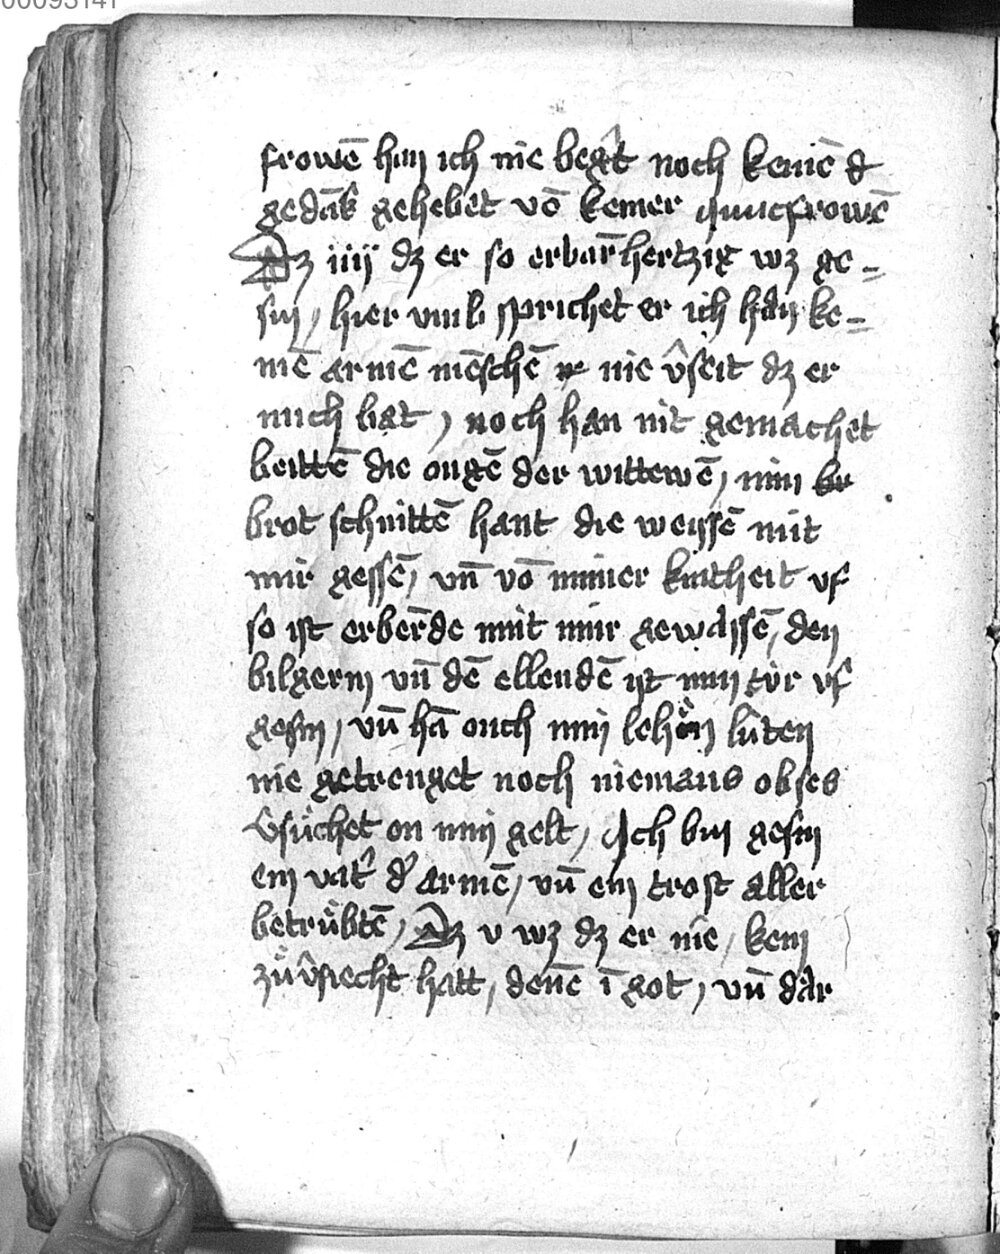 00093141
frowē han ich nie beg̑t noch keinē d
gedāk gehebet vō keiner iuncfrowē
Dz iiij dz er so erbarm̄hertzig wz ge=
sin / hier vmb sprichet er ich han ke=
inē armē mēschē nie v̂seit dz er
mich bat / noch han nit gemachet
beittē die ougē der wittewē / min
brot schnittē hant die weyssē mit
mir gessē / vn̄ vō miner kintheit vf
so ist erber̄de mit mir gewassē / den
bilgerin vn̄ dē ellendē ist min tv̇r vf
gesin / vn̄ hā ouch min lehen lůten
nie getrenget noch niemans obses
v̂sůchet on min gelt / Ich bin gesin
ein vat̑ d̑ armē / vn̄ ein trost aller
betrůbtē / Dz v wz dz er nie / kein
zův̂siecht hatt / denē ī got / vn̄ dar